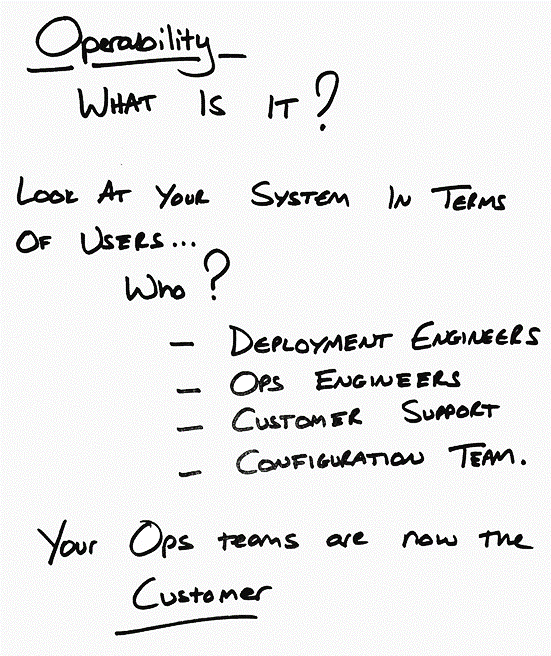 Operability
WHAT IS IT?
LOOK AT YOUR SYSTEM IN TERMS
OF USERS...
WHO?
- DEPLOYMENT ENGINEERS
- OPS ENGINEERS
- CUSTOMER SUPPORT
- CONFIGURATION TEAM.
Your Ops teams are now the
Customer